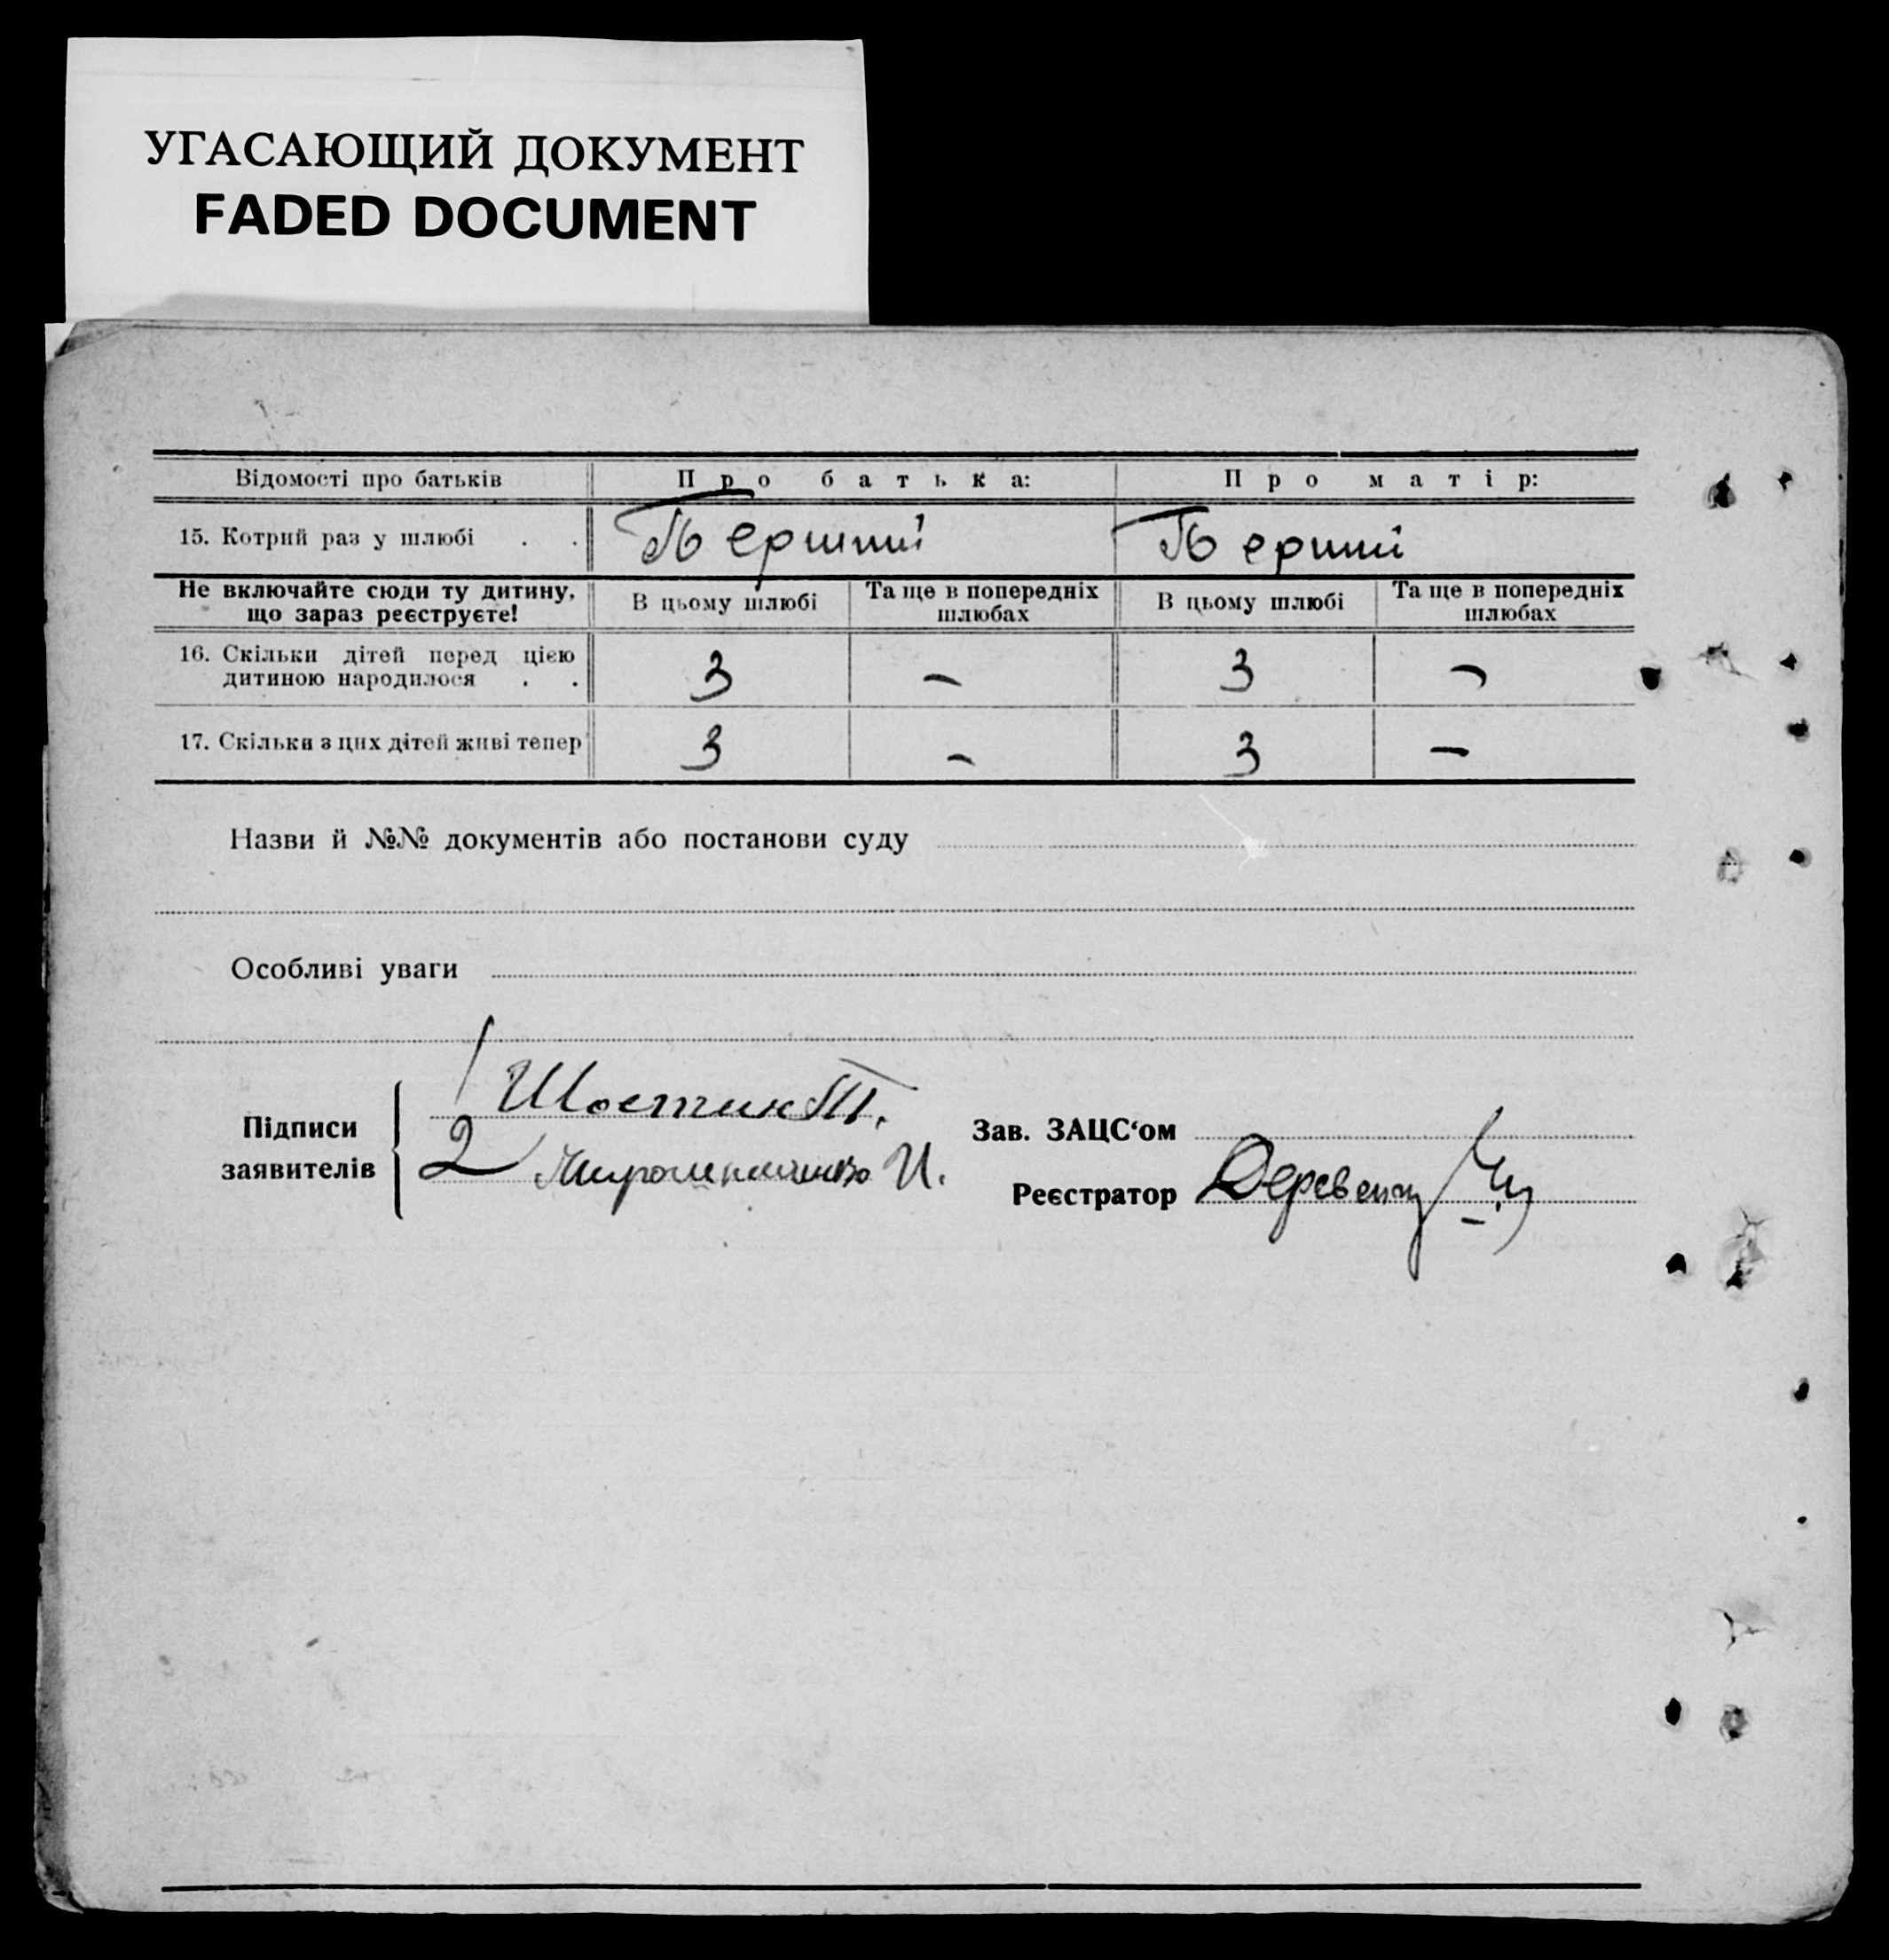 УГАСАЮЩИЙ ДОКУМЕНТ
FADED DOCUMENT
Відомості про батьків Про батька: Про матір:
15. Котрий раз у шлюбі . . Перший Перший
Не включайте сюди ту дитину, що зараз реєструєте! В цьому шлюбі Та ще в попередніх шлюбах В цьому шлюбі Та ще в попередніх шлюбах
16. Скільки дітей перед цією
дитиною народилося . . 3 – 3 –
17. Скільки з цих дітей живі тепер 3 – 3 –
Назви й №№ документів або постанови суду
Особливі уваги
Підписи заявителів
1 Шостик П.
2 И.
Зав. ЗАЦС‘ом
Реєстратор